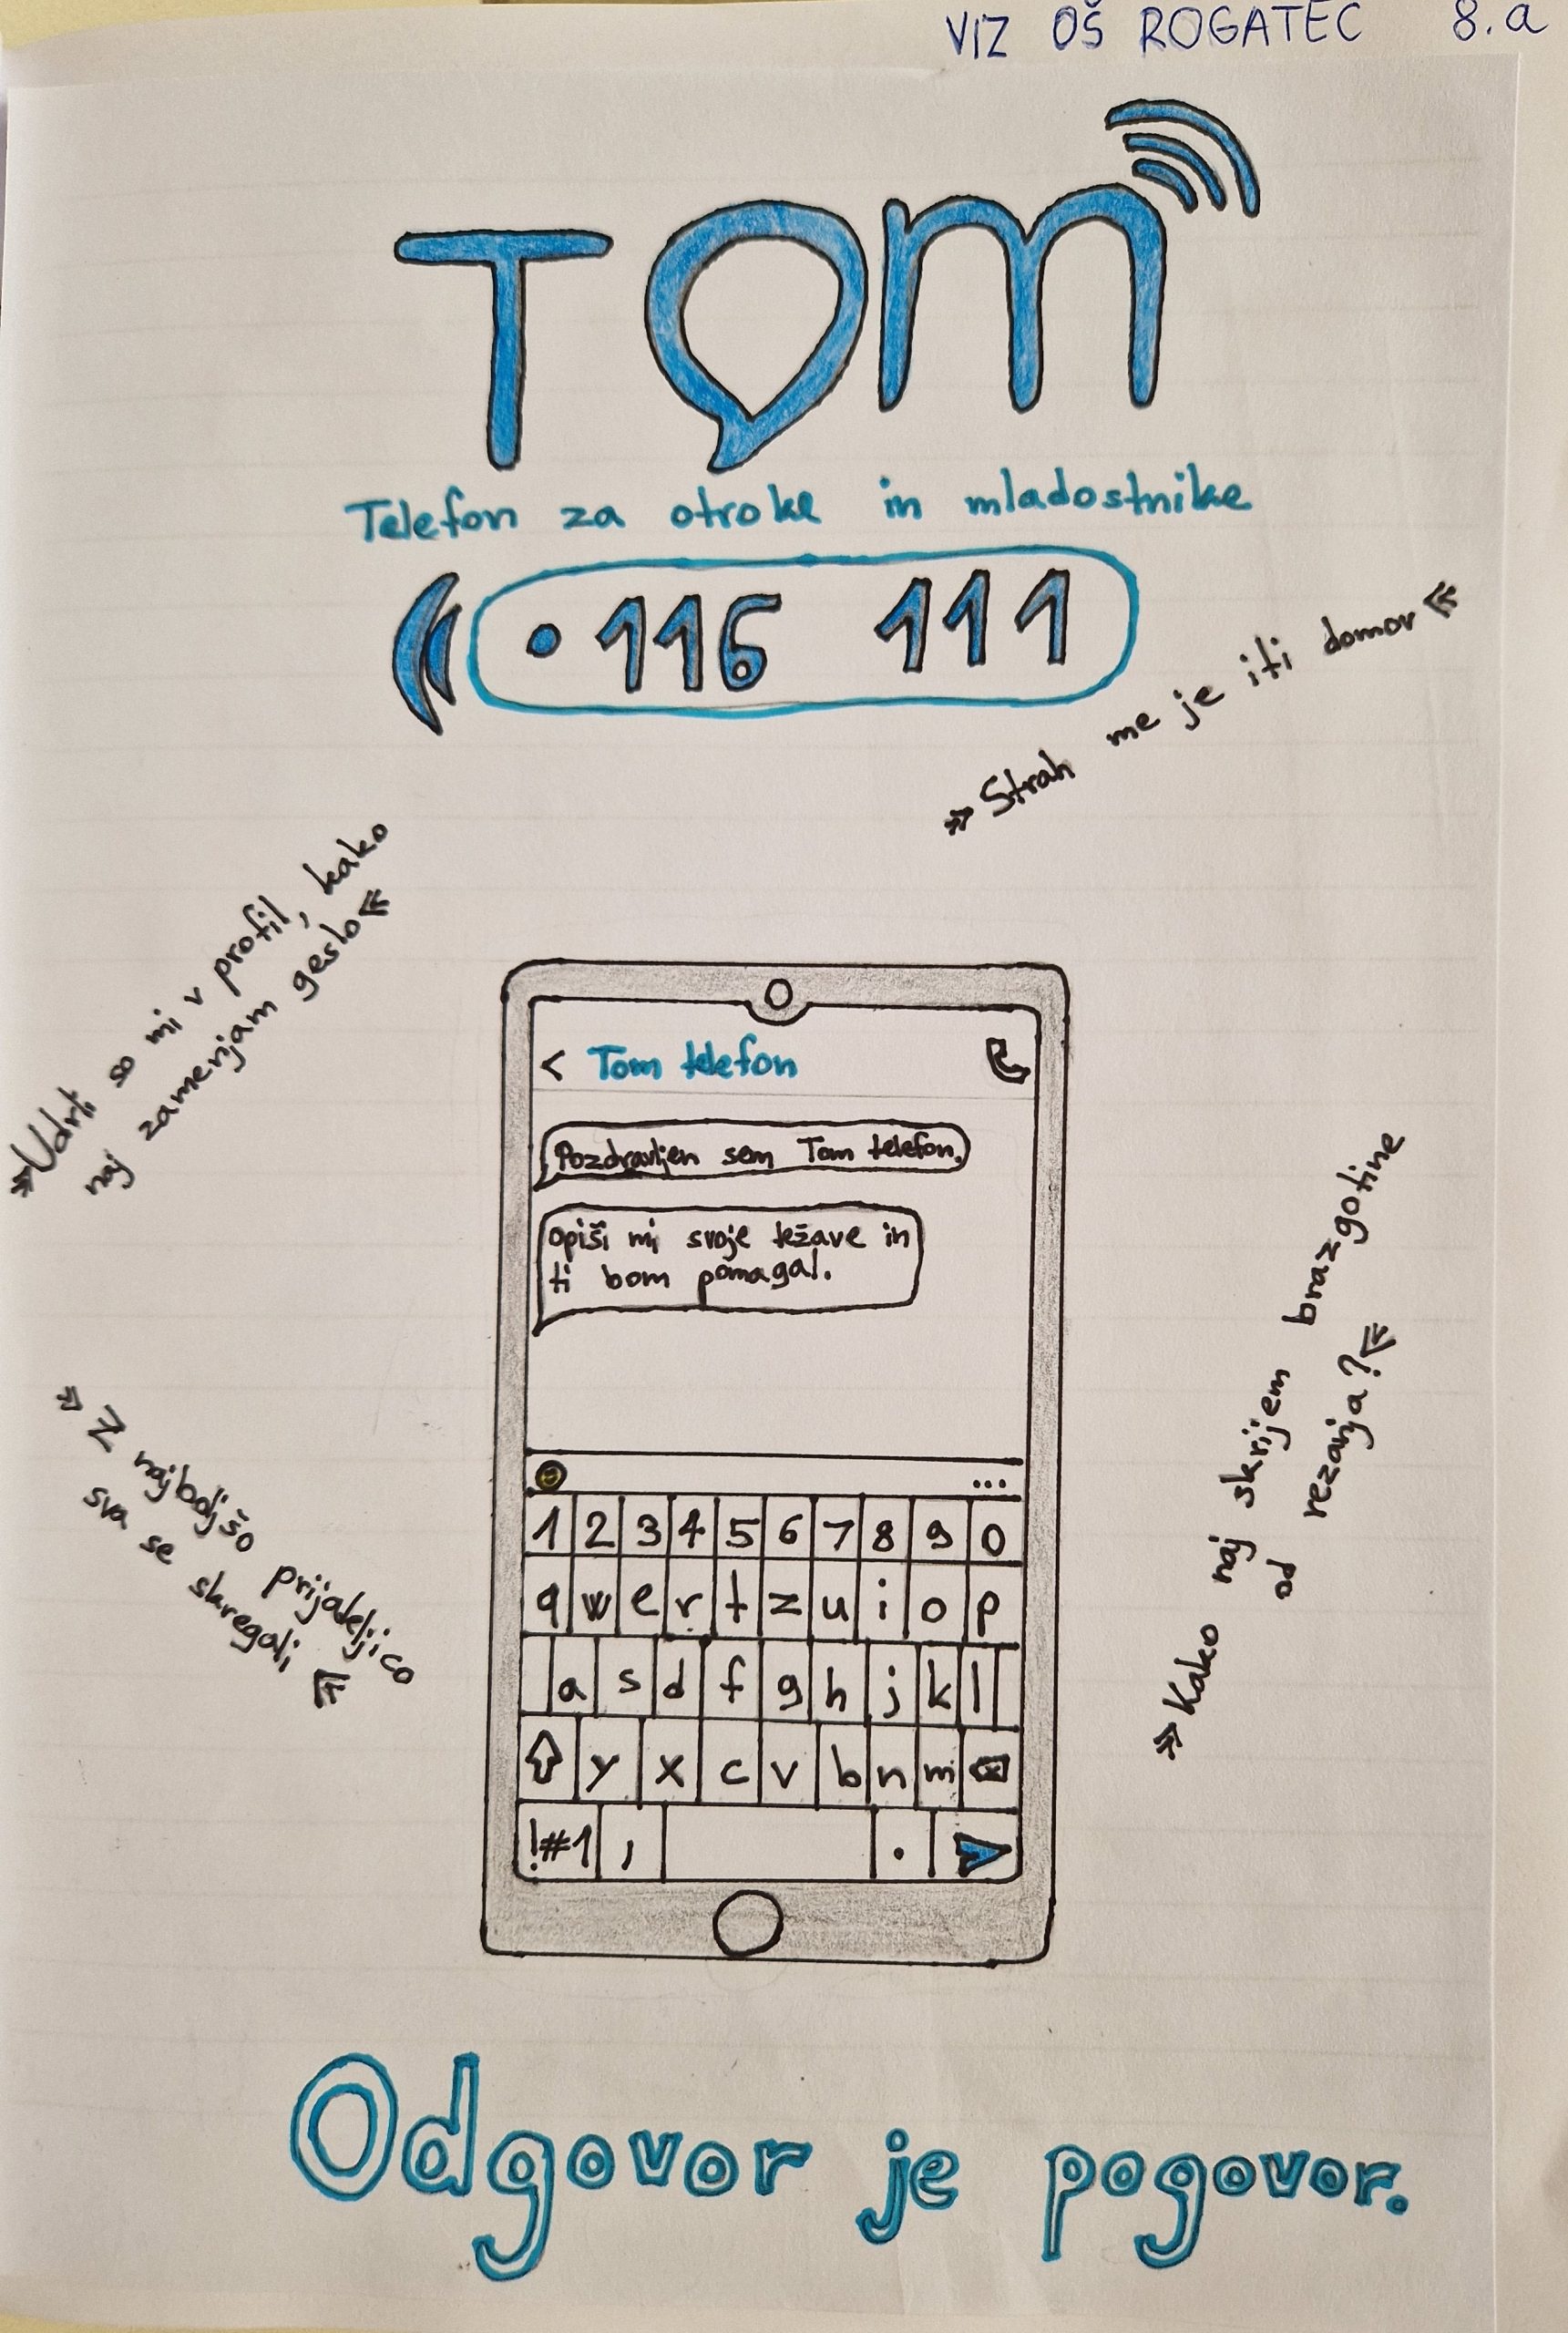 VIZ OŠ ROGATEC 8.a
TOM
Telefon za otroke in mladostnike
116 111
»Strah me je iti domov«
»Udrli so mi v profil, kako
naj zamenjam geslo«
< Tom telefon
Pozdravljen sem Tom telefon.
Opiši mi svoje težave in
ti bom pomagal.
»Kako naj skrijem brazgotine
od rezanja?«
»Z najboljšo prijateljico
sva se skregali«
...
1 2 3 4 5 6 7 8 9 0
q w e r t z u i o p
a s d f g h j k l
y x c v b n m
!#1 , .
Odgovor je pogovor.